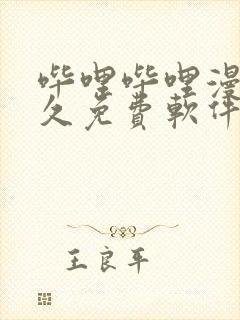 哔哩哔哩漫
久免费軟件
王良平